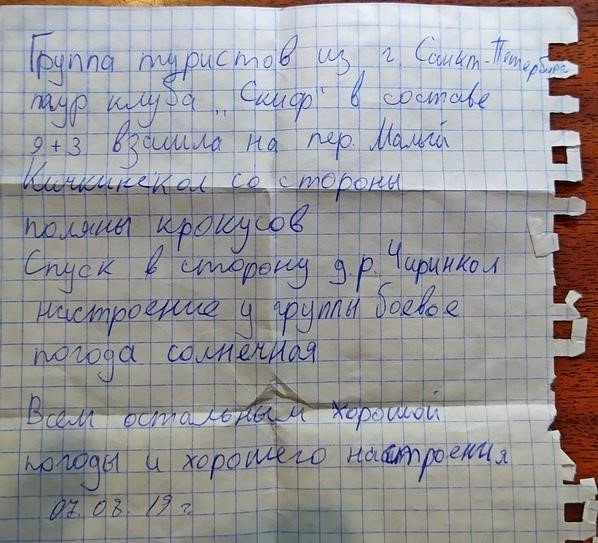 Группа туристов из г. Санкт-Петербурга
тур клуба "Скиф" в составе
9+3 взошла на пер. Малый
Кичкинекол со стороны
поляны крокусов
Спуск в сторону д.р. Чиринкол
настроение у группы боевое
погода солнечная
Всем остальным хорошой
погоды и хорошего настроения
07.08.19 г.